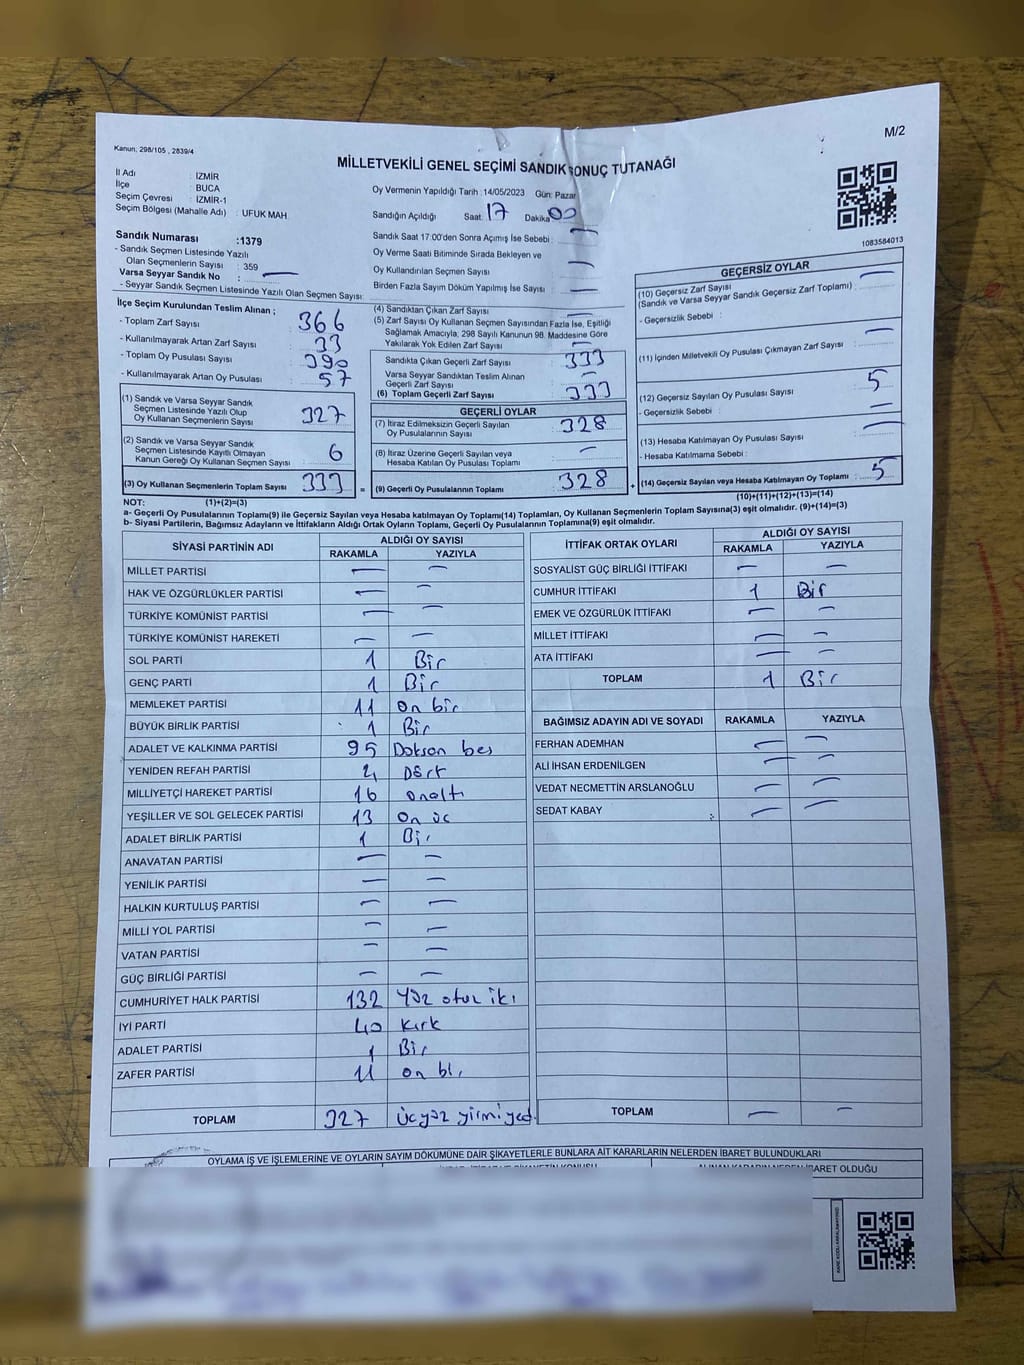 M/2
Kanun: 298/105 , 2839/4
MİLLETVEKİLİ GENEL SEÇİMİ SANDIK SONUÇ TUTANAĞI
İl Adı : İZMİR
İlçe : BUCA
Seçim Çevresi : İZMİR-1
Seçim Bölgesi (Mahalle Adı) : UFUK MAH.
Oy Vermenin Yapıldığı Tarih :14/05/2023 Gün: Pazar
Sandığın Açıldığı Saat: 17 Dakika 00
1083584013
Sandık Numarası :1379
- Sandık Seçmen Listesinde Yazılı
Olan Seçmenlerin Sayısı : 359
Varsa Seyyar Sandık No : —
- Seyyar Sandık Seçmen Listesinde Yazılı Olan Seçmen Sayısı:
Sandık Saat 17:00'den Sonra Açımış İse Sebebi : —
Oy Verme Saati Bitiminde Sırada Bekleyen ve
Oy Kullandırılan Seçmen Sayısı : —
Birden Fazla Sayım Döküm Yapılmış İse Sayısı : —
İlçe Seçim Kurulundan Teslim Alınan ;
- Toplam Zarf Sayısı : 366
- Kullanılmayarak Artan Zarf Sayısı : 33
- Toplam Oy Pusulası Sayısı : 390
- Kullanılmayarak Artan Oy Pusulası : 57
(1) Sandık ve Varsa Seyyar Sandık
Seçmen Listesinde Yazılı Olup
Oy Kullanan Seçmenlerin Sayısı : 327
(2) Sandık ve Varsa Seyyar Sandık
Seçmen Listesinde Kayıtlı Olmayan
Kanun Gereği Oy Kullanan Seçmen Sayısı : 6
(3) Oy Kullanan Seçmenlerin Toplam Sayısı : 333
(4) Sandıktan Çıkan Zarf Sayısı : —
(5) Zarf Sayısı Oy Kullanan Seçmen Sayısından Fazla İse, Eşitliği
Sağlamak Amacıyla, 298 Sayılı Kanunun 98. Maddesine Göre
Yakılarak Yok Edilen Zarf Sayısı : —
Sandıkta Çıkan Geçerli Zarf Sayısı : 333
Varsa Seyyar Sandıktan Teslim Alınan
Geçerli Zarf Sayısı : —
(6) Toplam Geçerli Zarf Sayısı : 333
GEÇERLİ OYLAR
(7) İtiraz Edilmeksizin Geçerli Sayılan
Oy Pusulalarının Sayısı : 328
(8) İtiraz Üzerine Geçerli Sayılan veya
Hesaba Katılan Oy Pusulası Toplamı : —
= (9) Geçerli Oy Pusulalarının Toplamı : 328
GEÇERSİZ OYLAR
(10) Geçersiz Zarf Sayısı
(Sandık ve Varsa Seyyar Sandık Geçersiz Zarf Toplamı) : —
- Geçersizlik Sebebi :
(11) İçinden Milletvekili Oy Pusulası Çıkmayan Zarf Sayısı : —
(12) Geçersiz Sayılan Oy Pusulası Sayısı : 5
- Geçersizlik Sebebi : —
(13) Hesaba Katılmayan Oy Pusulası Sayısı : —
- Hesaba Katılmama Sebebi :
+ (14) Geçersiz Sayılan veya Hesaba Katılmayan Oy Toplamı : 5
NOT: (1)+(2)=(3)
(10)+(11)+(12)+(13)=(14)
a- Geçerli Oy Pusulalarının Toplamı(9) ile Geçersiz Sayılan veya Hesaba katılmayan Oy Toplamı(14) Toplamları, Oy Kullanan Seçmenlerin Toplam Sayısına(3) eşit olmalıdır. (9)+(14)=(3)
b- Siyasi Partilerin, Bağımsız Adayların ve İttifakların Aldığı Ortak Oyların Toplamı, Geçerli Oy Pusulalarının Toplamına(9) eşit olmalıdır.
SİYASİ PARTİNİN ADI ALDIĞI OY SAYISI
RAKAMLA YAZIYLA
MİLLET PARTİSİ — —
HAK VE ÖZGÜRLÜKLER PARTİSİ — —
TÜRKİYE KOMÜNİST PARTİSİ — —
TÜRKİYE KOMÜNİST HAREKETİ — —
SOL PARTİ 1 Bir
GENÇ PARTİ 1 Bir
MEMLEKET PARTİSİ 11 on bir
BÜYÜK BİRLİK PARTİSİ 1 Bir
ADALET VE KALKINMA PARTİSİ 95 Doksan beş
YENİDEN REFAH PARTİSİ 4 Dört
MİLLİYETÇİ HAREKET PARTİSİ 16 onaltı
YEŞİLLER VE SOL GELECEK PARTİSİ 13 on üç
ADALET BİRLİK PARTİSİ 1 Bir
ANAVATAN PARTİSİ — —
YENİLİK PARTİSİ — —
HALKIN KURTULUŞ PARTİSİ — —
MİLLİ YOL PARTİSİ — —
VATAN PARTİSİ — —
GÜÇ BİRLİĞİ PARTİSİ — —
CUMHURİYET HALK PARTİSİ 132 Yüz otuz iki
İYİ PARTİ 40 Kırk
ADALET PARTİSİ 1 Bir
ZAFER PARTİSİ 11 on bir
TOPLAM 327 üçyüz yirmi yedi
İTTİFAK ORTAK OYLARI ALDIĞI OY SAYISI
RAKAMLA YAZIYLA
SOSYALİST GÜÇ BİRLİĞİ İTTİFAKI — —
CUMHUR İTTİFAKI 1 Bir
EMEK VE ÖZGÜRLÜK İTTİFAKI — —
MİLLET İTTİFAKI — —
ATA İTTİFAKI — —
TOPLAM 1 Bir
BAĞIMSIZ ADAYIN ADI VE SOYADI RAKAMLA YAZIYLA
FERHAN ADEMHAN — —
ALİ İHSAN ERDENİLGEN — —
VEDAT NECMETTİN ARSLANOĞLU — —
SEDAT KABAY — —
TOPLAM — —
OYLAMA İŞ VE İŞLEMLERİNE VE OYLARIN SAYIM DÖKÜMÜNE DAİR ŞİKAYETLERLE BUNLARA AİT KARARLARIN NELERDEN İBARET BULUNDUKLARI
ALINAN KARARIN NEDEN İBARET OLDUĞU